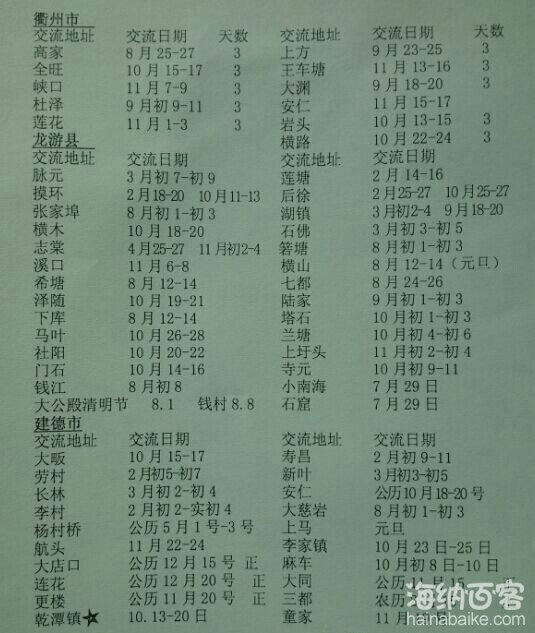 衢州市
交流地址 交流日期 天数 交流地址 交流日期 天数
高家 8月25-27 3 上方 9月23-25 3
全旺 10月15-17 3 王车塘 11月13-16 3
峡口 11月7-9 3 大渊 9月18-20 3
杜泽 9月初9-11 3 安仁 11月15-17
莲花 11月1-3 3 岩头 10月13-15 3
横路 10月22-24 3
龙游县
交流地址 交流日期 交流地址 交流日期
脉元 3月初7-初9 莲塘 2月14-16
摸环 2月18-20 10月11-13 后徐 2月25-27 10月25-27
张家埠 8月初1-初3 湖镇 3月初2-4 9月18-20
横木 10月18-20 石佛 3月初3-初5
志棠 4月25-27 11月初2-4 箬塘 8月初1-初3
溪口 11月6-8 横山 8月12-14(元旦)
希塘 8月12-14 七都 8月24-26
泽随 10月19-21 陆家 9月初1-初3
下库 8月12-14 塔石 10月初1-初3
马叶 10月26-28 兰塘 10月初4-初6
社阳 10月20-22 上圩头 11月初2-初4
门石 10月14-16 寺元 10月初9-11
钱江 8月初8 小南海 7月29日
大公殿清明节 8.1 钱村8.8 石窟 7月29日
建德市
交流地址 交流日期 交流地址 交流日期
大畈 10月15-17 寿昌 2月初9-11
劳村 2月初5-初7 新叶 3月初3-初5
长林 3月初2-初4 安仁 公历10月18-20号
李村 2月初2-实初4 大慈岩 8月初1-初3
杨村桥 公历5月1号-3号 上马 元旦
航头 11月22-24 李家镇 10月23日-25日
大店口 公历12月15号 正 麻车 10月初8日-10日
连花 公历12月20号 正 大同 公历11月15
更楼 公历11月20号 正 三都 农历
乾潭镇★ 10.13-20日 童家 11月
海纳百客
hanabaike.com